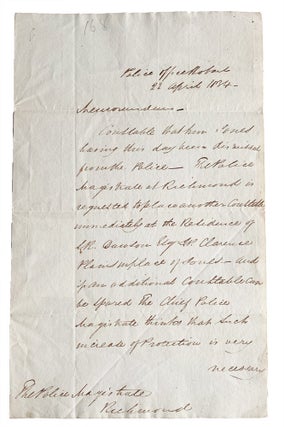 168
Police Office Hobart
22 April 1834.
Memorandum
Constable Jones
having this day been dismissed
from the Police — The Police
Magistrate at Richmond is
requested to place another Constable
immediately at the Residence of
Dawson Esqr Clarence
Plains in place of Jones — and
if an additional Constable can
be spared The Chief Police
Magistrate thinks that such
increase of Protection is very
necessary
The Police Magistrate
Richmond